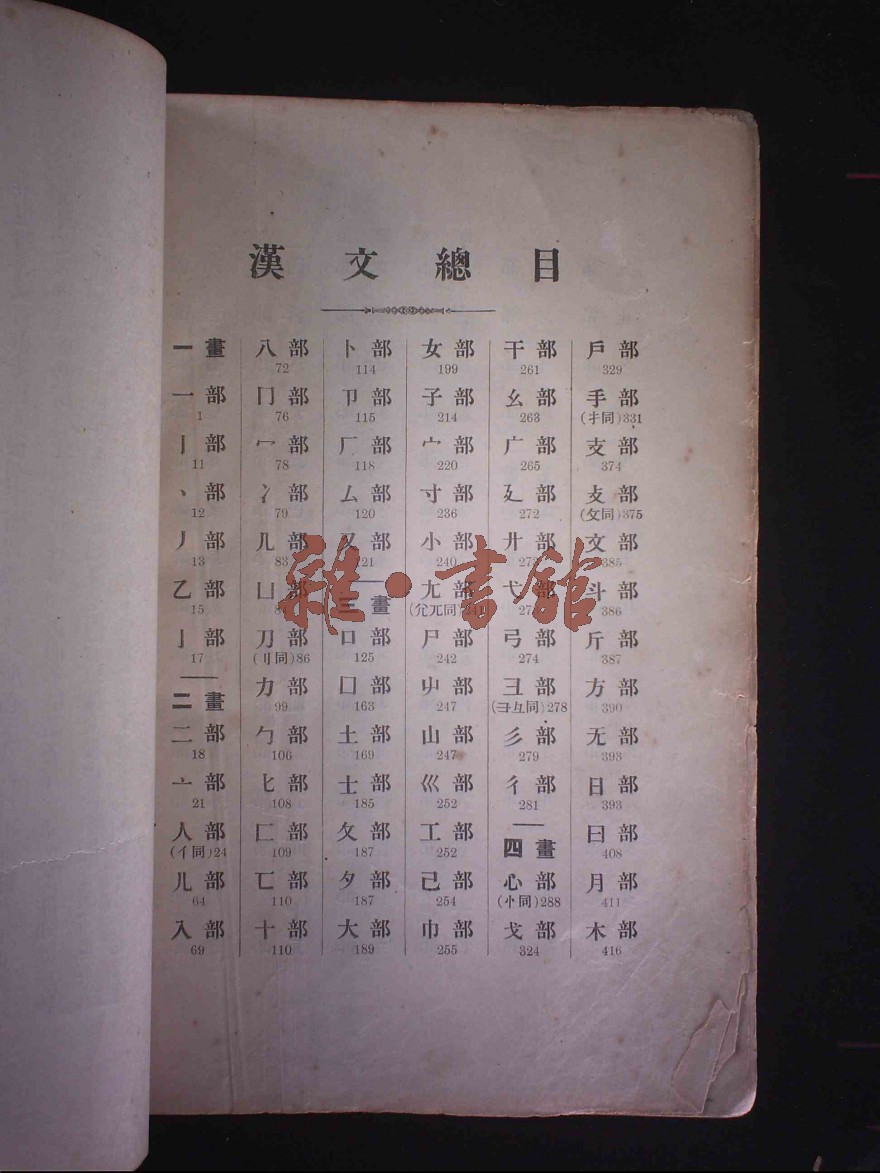 漢文總目
一畫
一部
1
丨部
11
丶部
12
丿部
13
乙部
15
亅部
17
二畫
二部
18
亠部
21
人部
(亻同)24
儿部
64
入部
69
八部
72
冂部
76
冖部
78
冫部
79
几部
83
凵部
刀部
(刂同)86
力部
99
勹部
106
匕部
108
匚部
109
匸部
110
十部
110
卜部
114
卩部
115
厂部
118
厶部
120
又部
121
三畫
口部
125
囗部
163
土部
169
士部
185
夂部
187
夕部
187
大部
189
女部
199
子部
214
宀部
220
寸部
236
小部
240
尢部
(尣兀同)
尸部
242
屮部
247
山部
247
巛部
252
工部
252
己部
254
巾部
255
干部
261
幺部
263
广部
265
廴部
272
廾部
弋部
弓部
274
彐部
(彑同)278
彡部
279
彳部
281
四畫
心部
(忄同)288
戈部
324
戶部
329
手部
(扌同)331
支部
374
攴部
(攵同)375
文部
385
斗部
386
斤部
387
方部
390
无部
393
日部
393
曰部
408
月部
411
木部
416
雜·書館